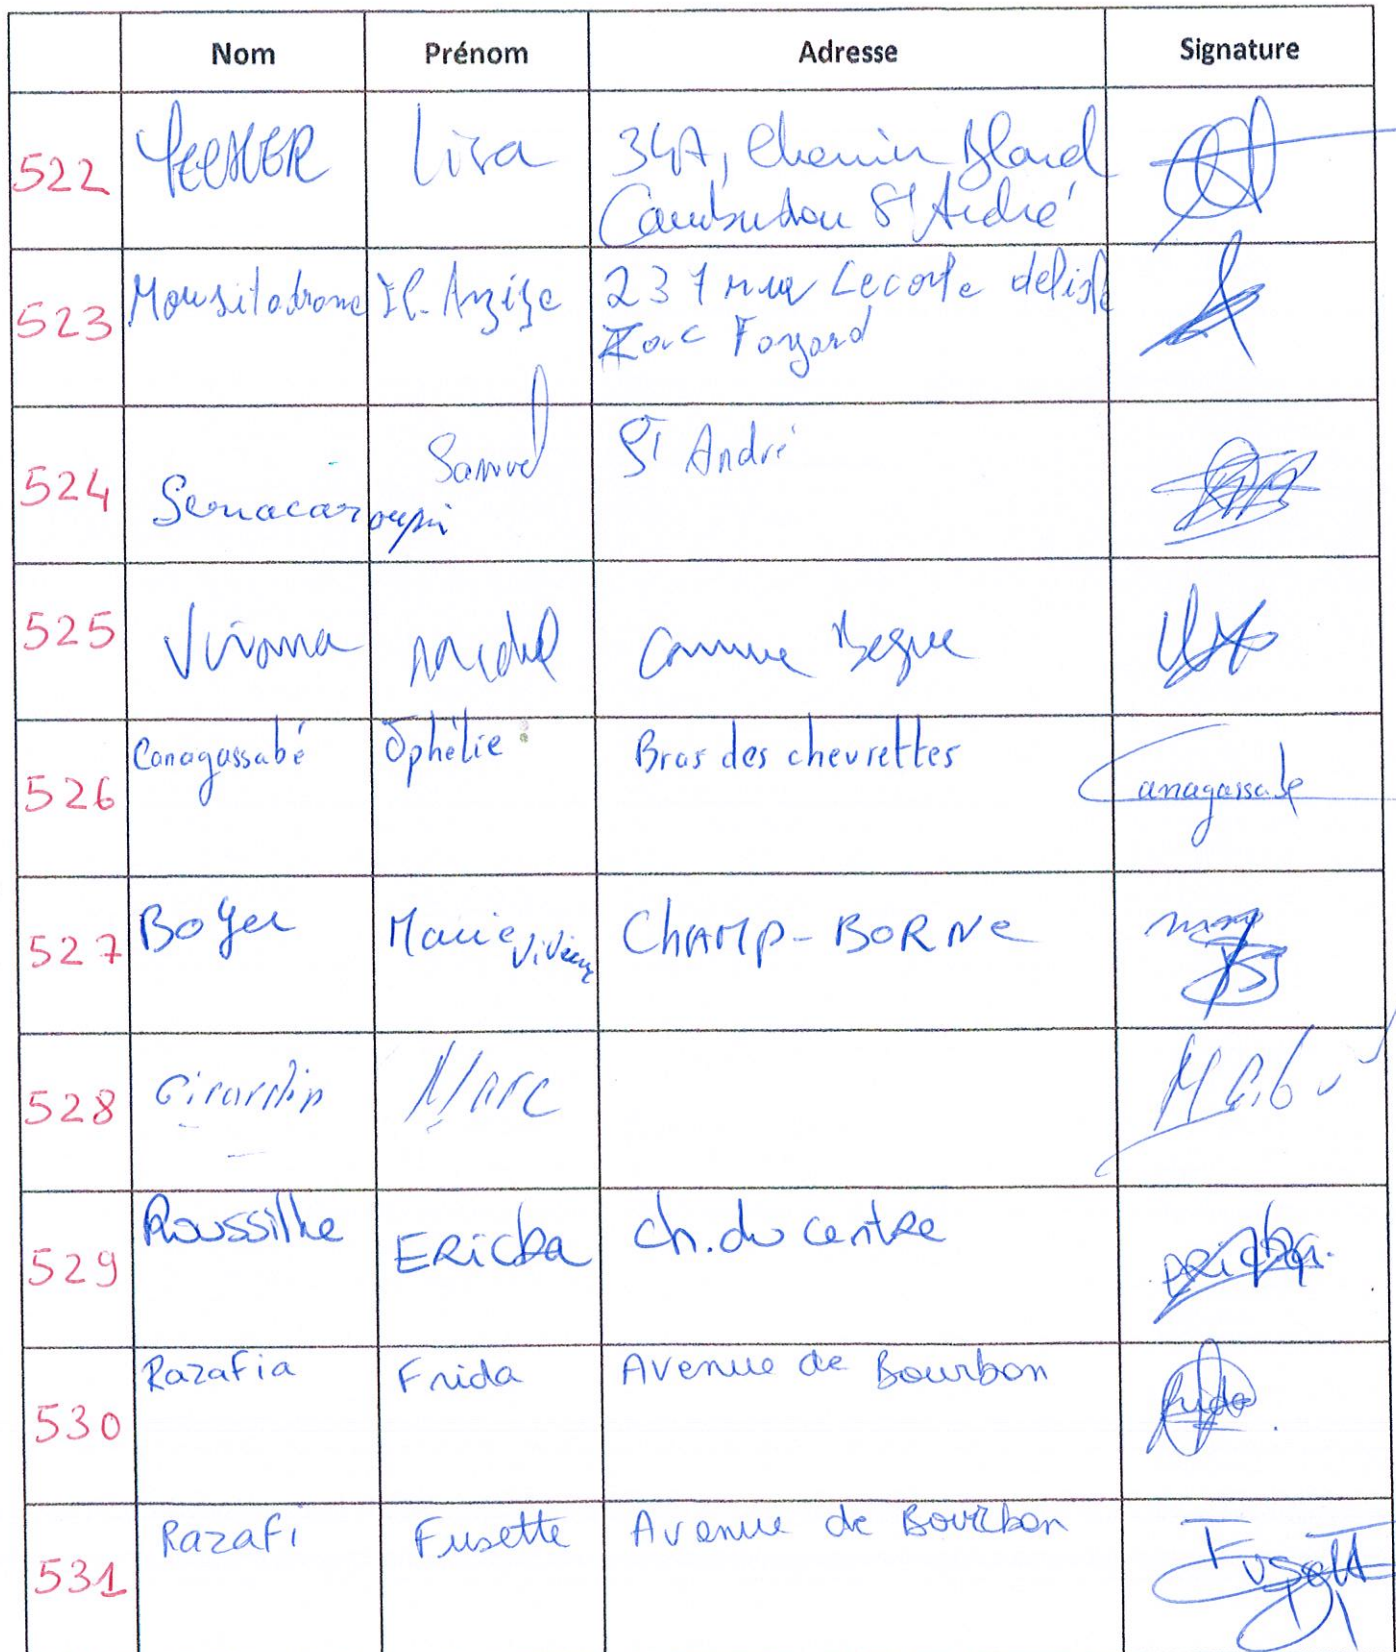 Nom Prénom Adresse Signature
522 Lisa 34A, Chemin Blard
Cambuston St André
523 Mousitadrane 237 rue Leconte delisle
Zac Fayard
524 Samuel St André
Senacaroupin
525 Virama Michel Commune Begue
526 Canagassabé Ophélie Bras des chevrettes Canagassabe
527 Boyer Marie Vivienne CHAMP-BORNE
528 Girardin Marc
529 Roussilhe ERicka ch. du centre ericka
530 Razafia Frida Avenue de Bourbon Frida
531 Razafi Fusette Avenue de Bourbon Fusett